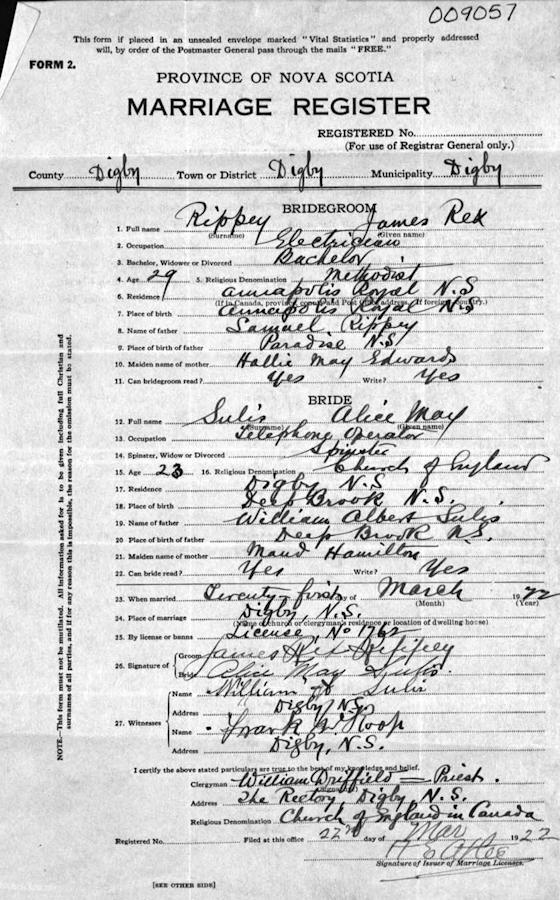 009057
This form if placed in an unsealed envelope marked "Vital Statistics" and properly addressed
will, by order of the Postmaster General pass through the mails "FREE."
FORM 2.
PROVINCE OF NOVA SCOTIA
MARRIAGE REGISTER
REGISTERED No.
(For use of Registrar General only.)
County Digby Town or District Digby Municipality Digby
BRIDEGROOM
1. Full name Rippey James Rex
(Surname) (Given name)
2. Occupation Electrician
3. Bachelor, Widower or Divorced Bachelor
4. Age 29 5. Religious Denomination Methodist
6. Residence Annapolis Royal N.S
(If in Canada, province, county and Post Office address. If foreign, country.)
7. Place of birth Annapolis Royal N.S
8. Name of father Samuel Rippey
9. Place of birth of father Paradise N.S
10. Maiden name of mother Hallie May Edwards
11. Can bridegroom read? Yes Write? Yes
BRIDE
12. Full name Sulis Alice May
(Surname) (Given name)
13. Occupation Telephone Operator
14. Spinster, Widow or Divorced Spinster
15. Age 23 16. Religious Denomination Church of England
17. Residence Digby N.S
18. Place of birth Deep Brook N.S.
19. Name of father William Albert Sulis
20 Place of birth of father Deep Brook N.S.
21. Maiden name of mother Maud Hamilton
22. Can bride read? Yes Write? Yes
23. When married Twenty-first day of March 1922
(Month) (Year)
24. Place of marriage Digby, N.S.
(Name of church or clergyman's residence or location of dwelling house)
25. By license or banns License, No 1762
26. Signature of Groom James Rex Rippey
Bride Alice May Sulis.
27. Witnesses Name William Sulis
Address Digby N.S.
Name Frank Hoop
Address Digby, N.S.
I certify the above stated particulars are true to the best of my knowledge and belief.
Clergyman William Driffield = Priest.
(Signature)
Address The Rectory Digby N.S.
Religious Denomination Church of England in Canada
Registered No. Filed at this office 22nd day of Mar 1922
Signature of Issuer of Marriage Licenses.
[SEE OTHER SIDE]
NOTE.—This form must not be mutilated. All information asked for is to be given including full Christian and
surnames of all parties, and if for any reason this is impossible, the reason for the omission must be stated.